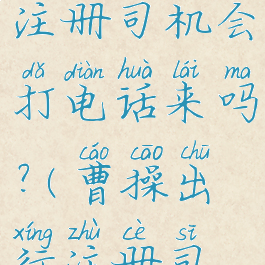 注册司机会
dǎ diàn huà lái ma
打电话来吗
cáo cāo chū
?(曹操出
xíng zhù cè sī
行注册司